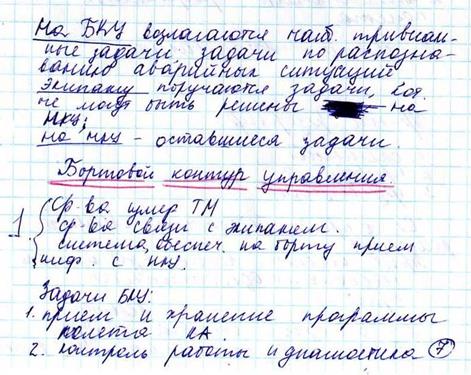 На БКУ возлагаются наиб. тривиаль-
ные задачи задачи по распозна-
ванию аварийных ситуаций
экипажу поручаются задачи, кот.
не могут быть решены на
НКУ;
на НКУ - оставшиеся задачи.
Бортовой контур управления
1 { Ср-ва измер ТМ
ср-ва связи с экипажем.
система, обеспеч. на борту прием
инф. с НКУ.
Задачи БКУ:
1. прием и хранение программы
полета КА
2. контроль работы и диагностика 7